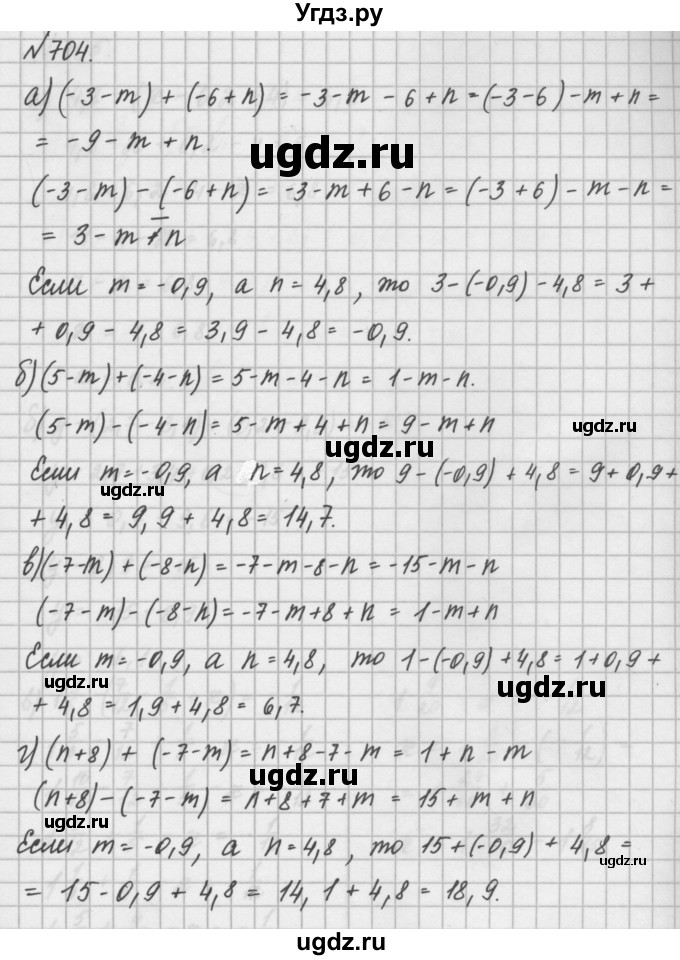 Угдз.ру
№704.
а) (-3-m) + (-6+n) = -3-m-6+n = (-3-6)-m+n =
= -9-m+n.
ugdz.ru
(-3-m) - (-6+n) = -3-m+6-n = (-3+6)-m-n =
= 3-m-n
Если m=-0,9, а n=4,8, то 3-(-0,9)-4,8 = 3+
+0,9-4,8 = 3,9-4,8 = -0,9.
б) (5-m)+(-4-n) = 5-m-4-n = 1-m-n.
(5-m)-(-4-n) = 5-m+4+n = 9-m+n
ugdz.ru
ugdz.ru
Если m=-0,9, а n=4,8, то 9-(-0,9)+4,8 = 9+0,9+
ugdz.ru
+4,8 = 9,9+4,8 = 14,7.
в) (-7-m)+(-8-n) = -7-m-8-n = -15-m-n
(-7-m)-(-8-n) = -7-m+8+n = 1-m+n
Если m=-0,9, а n=4,8, то 1-(-0,9)+4,8 = 1+0,9+
ugdz.ru
ugdz.ru
+4,8 = 1,9+4,8 = 6,7.
г) (n+8) + (-7-m) = n+8-7-m = 1+n-m
ugdz.ru
(n+8)-(-7-m) = n+8+7+m = 15+m+n
ugdz.ru
Если m=-0,9, а n=4,8, то 15+(-0,9)+4,8 =
ugdz.ru
= 15-0,9+4,8 = 14,1+4,8 = 18,9.
ugdz.ru